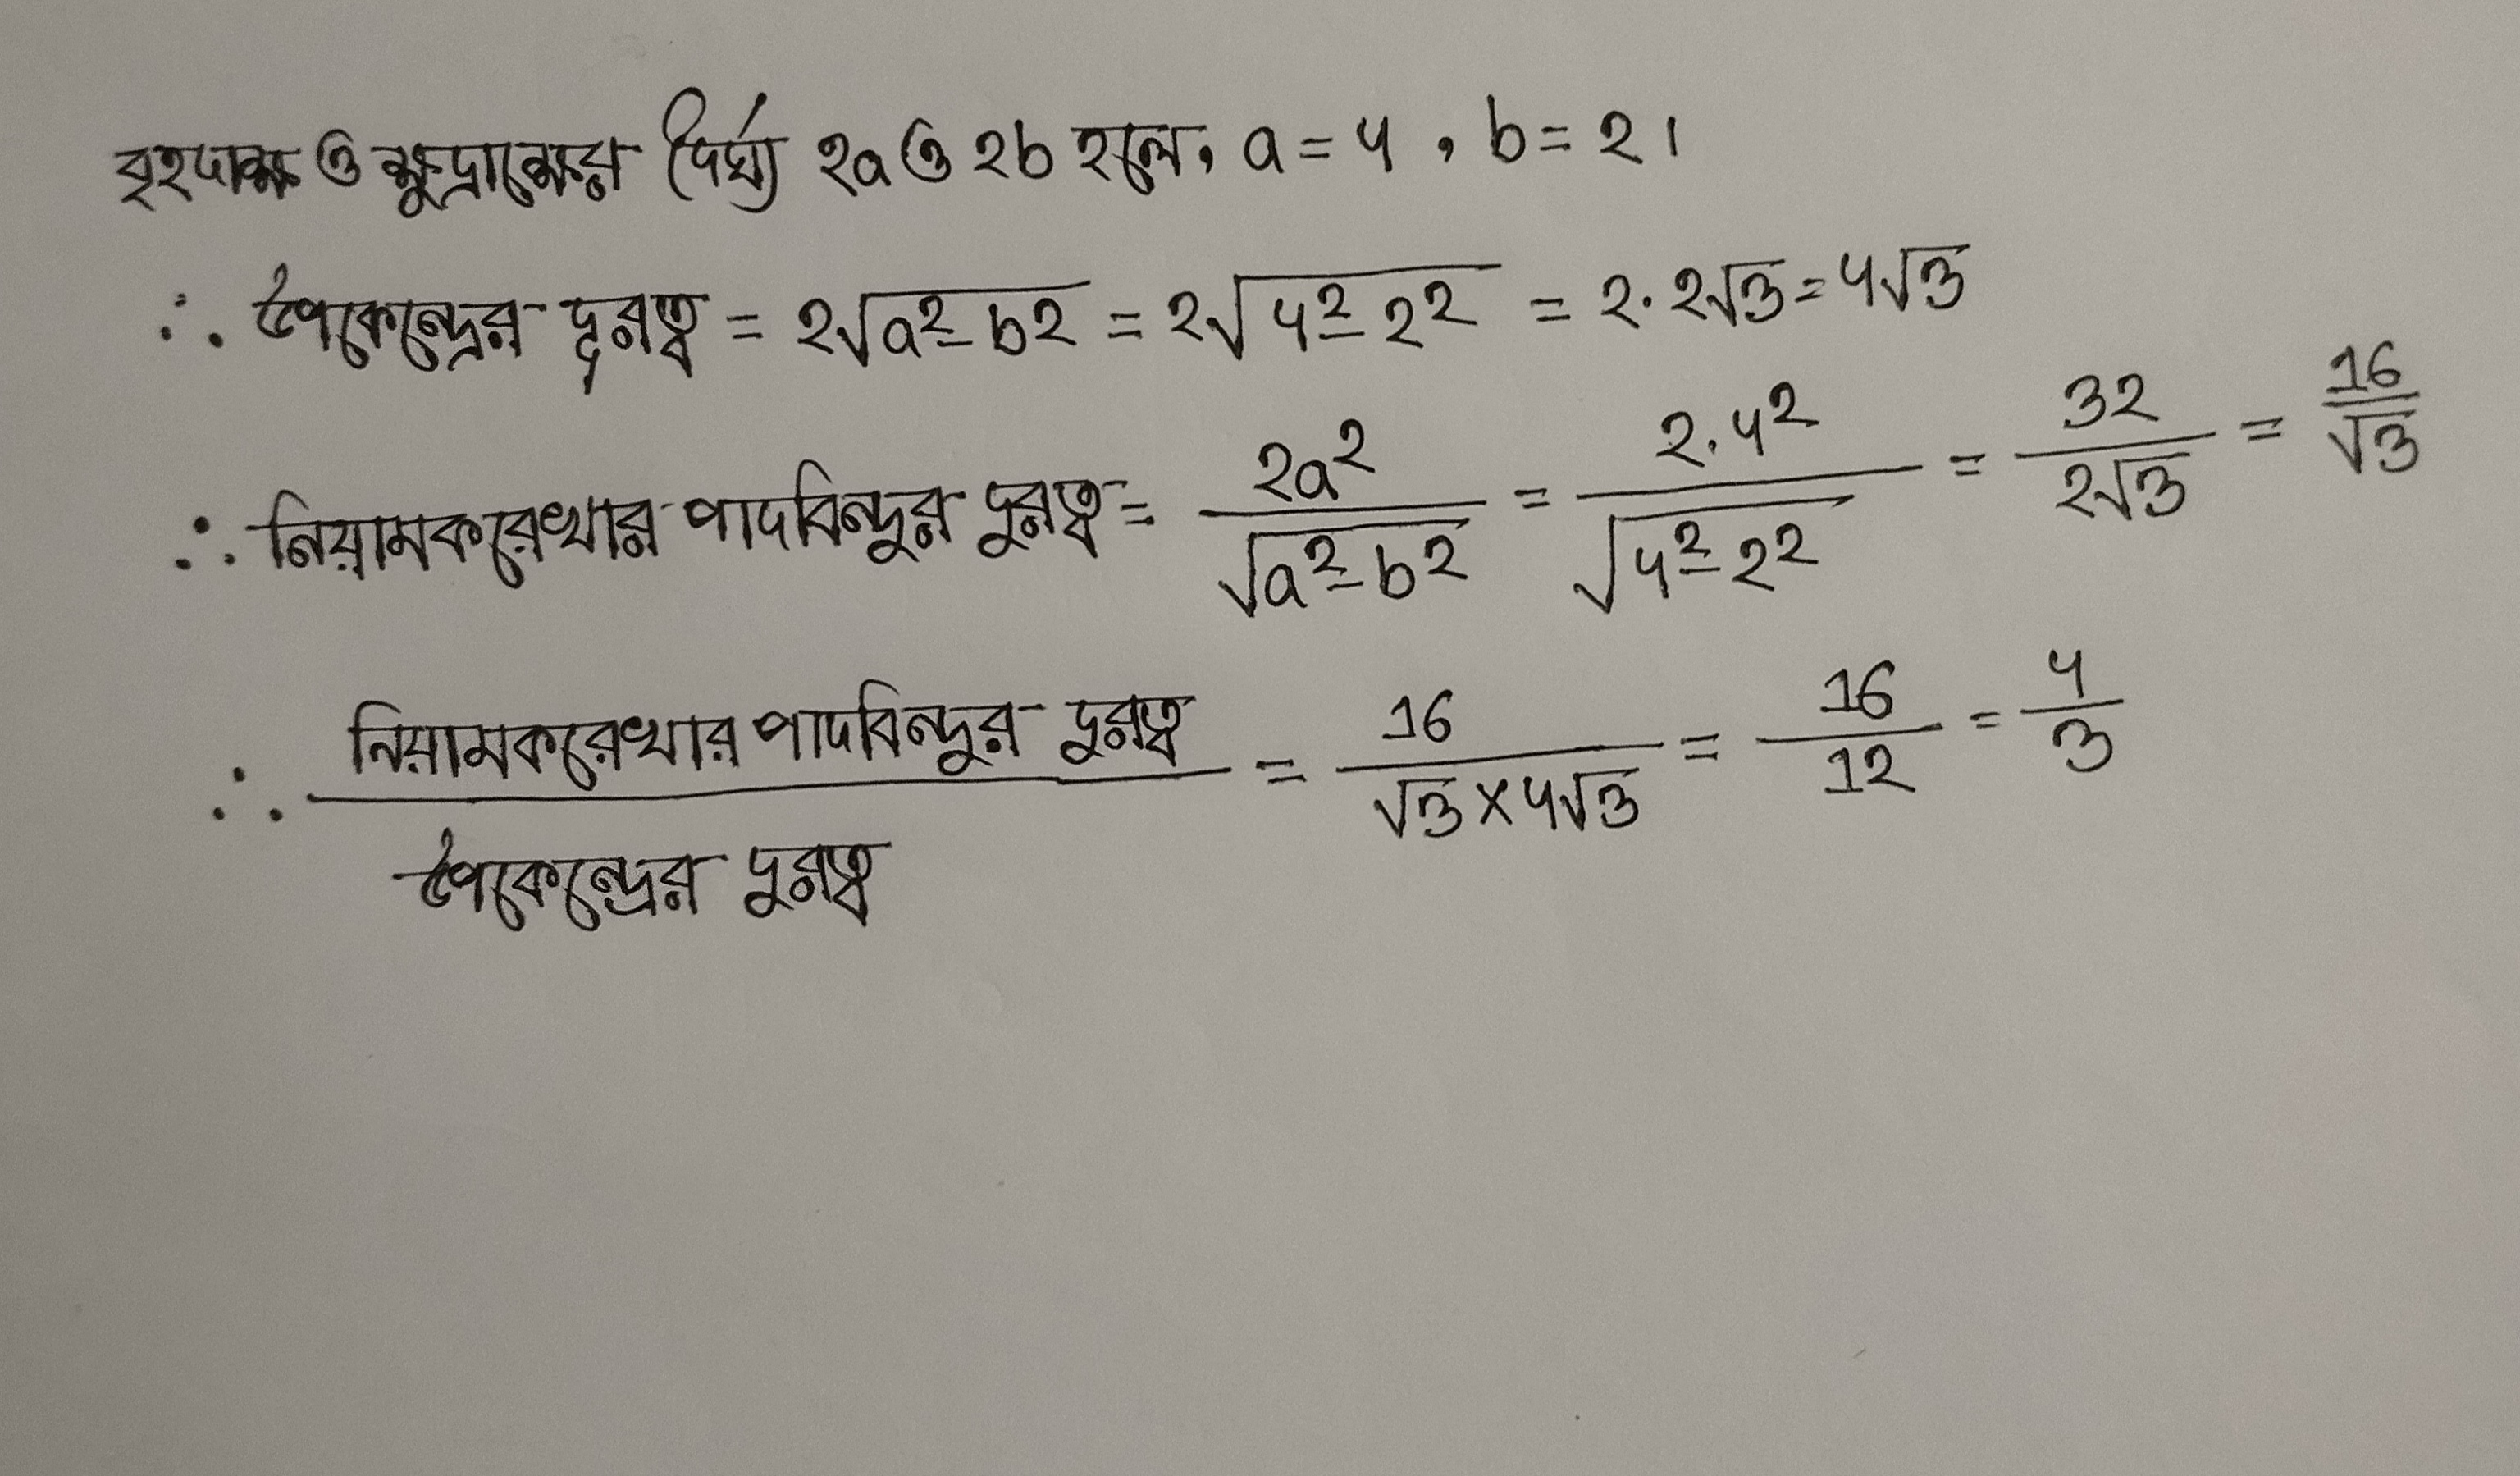 বৃহদাক্ষ ও ক্ষুদ্রাক্ষের দৈর্ঘ্য 2a ও 2b হলে, a = 4 , b = 2 ।
∴ উপকেন্দ্রের দূরত্ব = 2√(a² - b²) = 2√(4² - 2²) = 2 · 2√3 = 4√3
∴ নিয়ামকরেখার পাদবিন্দুর দূরত্ব = 2a²/√(a² - b²) = 2 · 4²/√(4² - 2²) = 32/2√3 = 16/√3
∴ নিয়ামকরেখার পাদবিন্দুর দূরত্ব/উপকেন্দ্রের দূরত্ব = 16/(√3 × 4√3) = 16/12 = 4/3